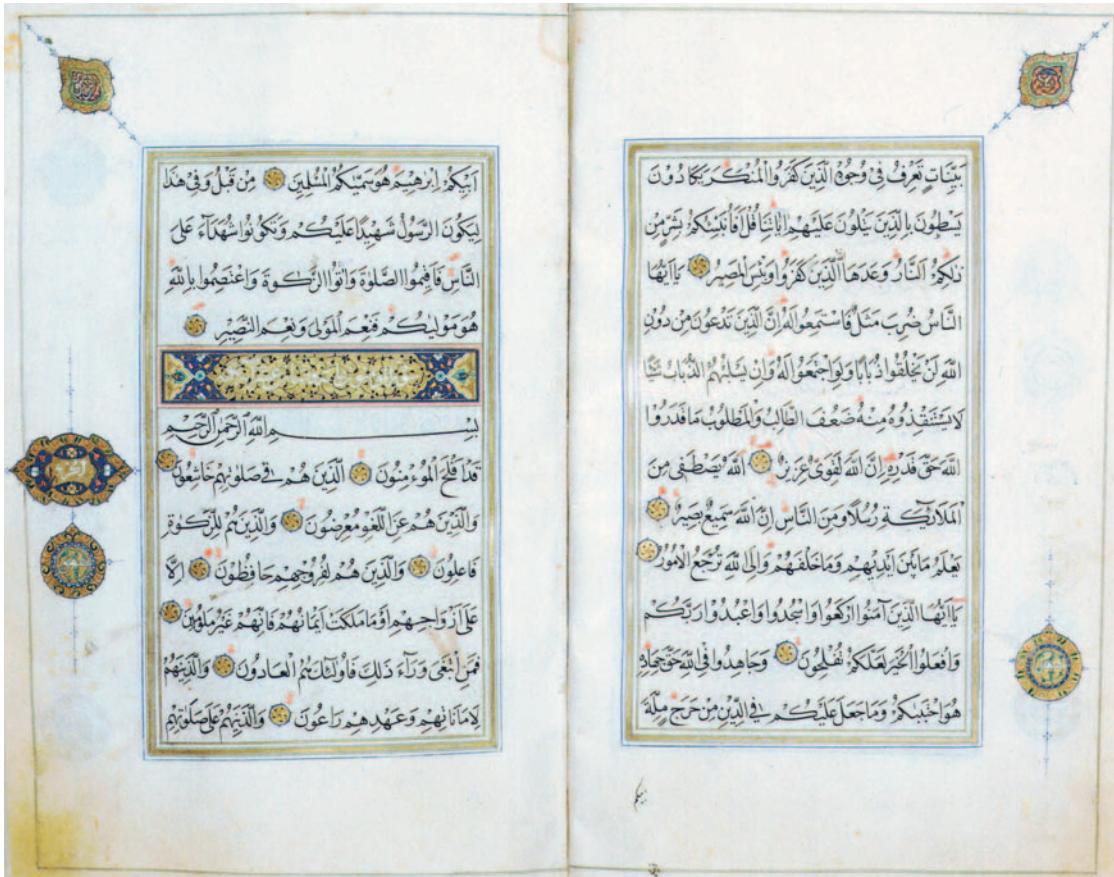 بَيِّنَاتٍ تَعْرِفُ فِي وُجُوهِ الَّذِينَ كَفَرُوا الْمُنْكَرَ يَكَادُونَ
يَسْطُونَ بِالَّذِينَ يَتْلُونَ عَلَيْهِمْ اٰيَاتِنَا قُلْ اَفَاُنَبِّئُكُمْ بِشَرٍّ مِنْ
ذٰلِكُمُ النَّارُ وَعَدَهَا اللّٰهُ الَّذِينَ كَفَرُوا وَبِئْسَ الْمَصِيرُ يَا اَيُّهَا
النَّاسُ ضُرِبَ مَثَلٌ فَاسْتَمِعُوا لَهُ اِنَّ الَّذِينَ تَدْعُونَ مِنْ دُونِ
اللّٰهِ لَنْ يَخْلُقُوا ذُبَابًا وَلَوِ اجْتَمَعُوا لَهُ وَاِنْ يَسْلُبْهُمُ الذُّبَابُ شَيْئًا
لَا يَسْتَنْقِذُوهُ مِنْهُ ضَعُفَ الطَّالِبُ وَالْمَطْلُوبُ مَا قَدَرُوا
اللّٰهَ حَقَّ قَدْرِهِ اِنَّ اللّٰهَ لَقَوِيٌّ عَزِيزٌ اَللّٰهُ يَصْطَفِي مِنَ
الْمَلَاۤئِكَةِ رُسُلًا وَمِنَ النَّاسِ اِنَّ اللّٰهَ سَمِيعٌ بَصِيرٌ
يَعْلَمُ مَا بَيْنَ اَيْدِيهِمْ وَمَا خَلْفَهُمْ وَاِلَى اللّٰهِ تُرْجَعُ الْاُمُورُ
يَا اَيُّهَا الَّذِينَ اٰمَنُوا ارْكَعُوا وَاسْجُدُوا وَاعْبُدُوا رَبَّكُمْ
وَافْعَلُوا الْخَيْرَ لَعَلَّكُمْ تُفْلِحُونَ وَجَاهِدُوا فِي اللّٰهِ حَقَّ جِهَادِهِ
هُوَ اجْتَبٰيكُمْ وَمَا جَعَلَ عَلَيْكُمْ فِي الدِّينِ مِنْ حَرَجٍ مِلَّةَ
ابيكم
اَبِيكُمْ اِبْرٰهِيمَ هُوَ سَمّٰيكُمُ الْمُسْلِمِينَ مِنْ قَبْلُ وَفِي هٰذَا
لِيَكُونَ الرَّسُولُ شَهِيدًا عَلَيْكُمْ وَتَكُونُوا شُهَدَاۤءَ عَلَى
النَّاسِ فَاَقِيمُوا الصَّلٰوةَ وَاٰتُوا الزَّكٰوةَ وَاعْتَصِمُوا بِاللّٰهِ
هُوَ مَوْلٰيكُمْ فَنِعْمَ الْمَوْلٰى وَنِعْمَ النَّصِيرُ
بِسْمِ اللّٰهِ الرَّحْمٰنِ الرَّحِيمِ
قَدْ اَفْلَحَ الْمُؤْمِنُونَ اَلَّذِينَ هُمْ فِي صَلَاتِهِمْ خَاشِعُونَ
وَالَّذِينَ هُمْ عَنِ اللَّغْوِ مُعْرِضُونَ وَالَّذِينَ هُمْ لِلزَّكٰوةِ
فَاعِلُونَ وَالَّذِينَ هُمْ لِفُرُوجِهِمْ حَافِظُونَ اِلَّا
عَلٰى اَزْوَاجِهِمْ اَوْ مَا مَلَكَتْ اَيْمَانُهُمْ فَاِنَّهُمْ غَيْرُ مَلُومِينَ
فَمَنِ ابْتَغٰى وَرَاۤءَ ذٰلِكَ فَاُولٰۤئِكَ هُمُ الْعَادُونَ وَالَّذِينَ هُمْ
لِاَمَانَاتِهِمْ وَعَهْدِهِمْ رَاعُونَ وَالَّذِينَ هُمْ عَلٰى صَلَوَاتِهِمْ